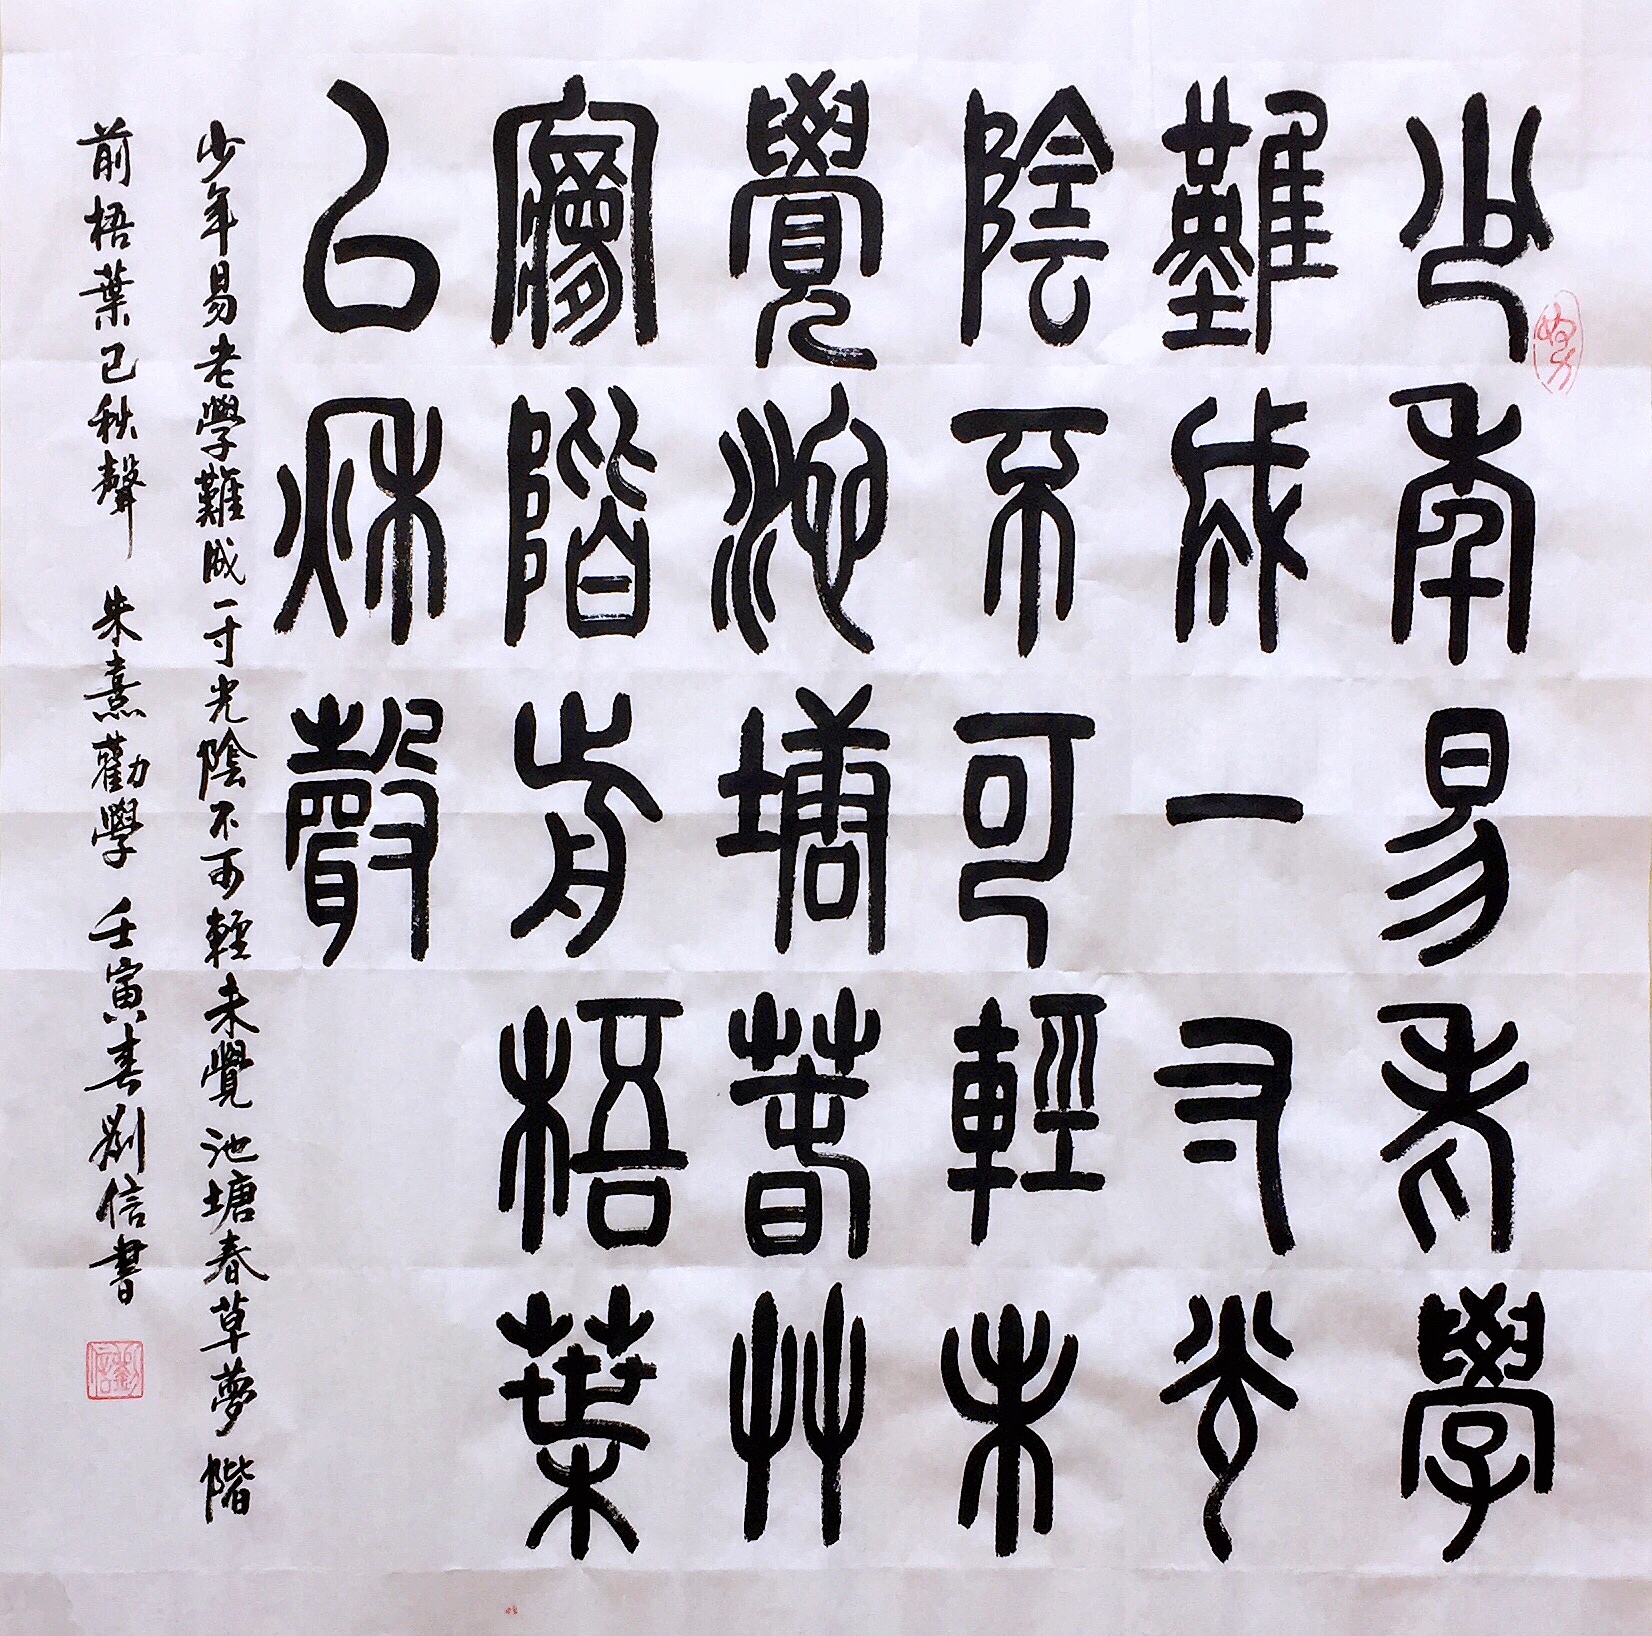 少年易老學
難成一寸光
陰不可輕未
覺池塘春草
夢階前梧葉
已秋聲
少年易老學難成一寸光陰不可輕未覺池塘春草夢階
前梧葉已秋聲 朱熹勸學 壬寅春劉信書
劉信